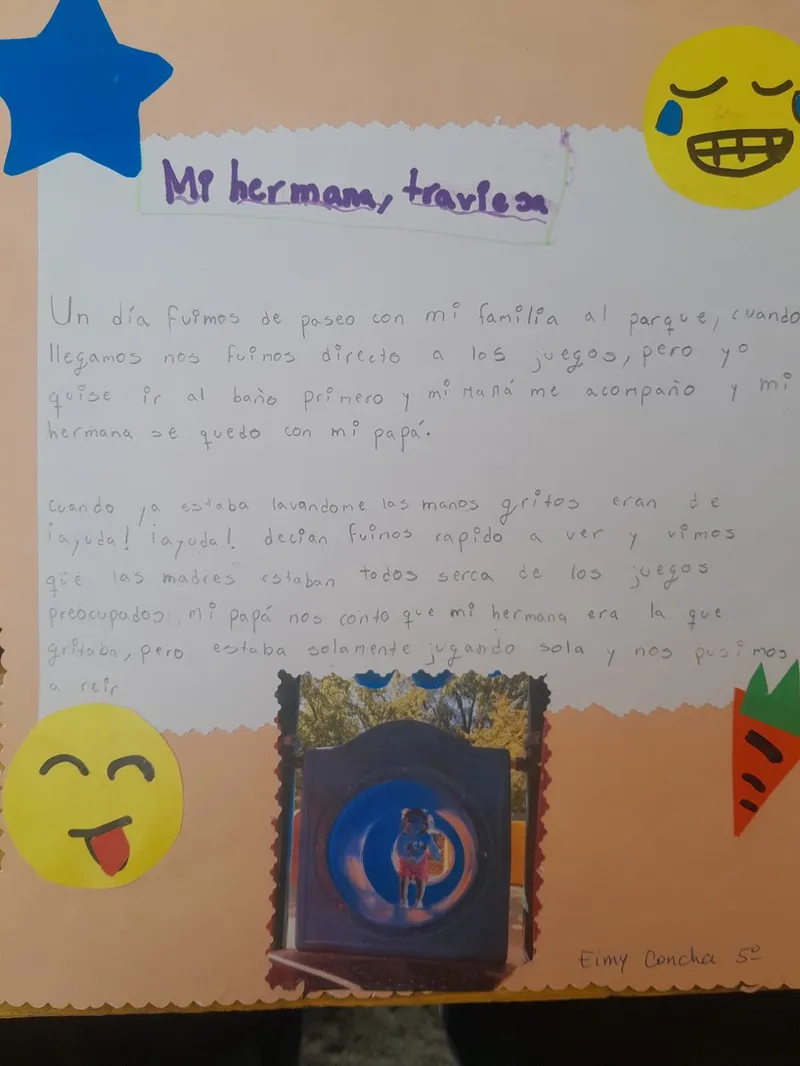 Mi hermana, traviesa
Un día fuimos de paseo con mi familia al parque, cuando
llegamos nos fuinos directo a los juegos, pero yo
quise ir al baño primero y mi mamá me acompaño y mi
hermana se quedo con mi papá.
cuando ya estaba lavandome las manos gritos eran de
¡ayuda! ¡ayuda! decían fuinos rapido a ver y vimos
que las madres estaban todos serca de los juegos
preocupados, mi papá nos conto que mi hermana era la que
gritaba, pero estaba solamente jugando sola y nos pusimos
a reir
Eimy Concha 5º